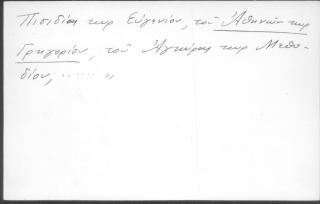 Πισιδίας κυρ Εὐγενίου, τοῦ Ἀθηνῶν κυρ
Γρηγορίου, τοῦ Ἀγκύρας κυρ Μεθο-
δίου, ...... »